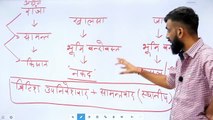 राजा
खालसा
सामन्त
भूमि बन्दोबस्त
किसान
नकद
ब्रिटिश उपनिवेशवाद + सामन्तवाद (स्थानीय)